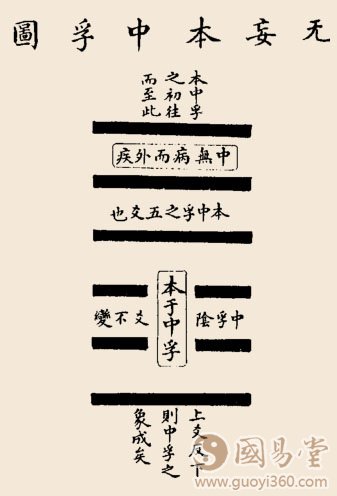 无妄本中孚圖
本中孚
之初往
而至此
中無病而外疾
本中孚之五爻也
中孚陰
本于中孚
爻不變
上爻反下
則中孚之
象成矣
國易堂
www.guoyi360.com